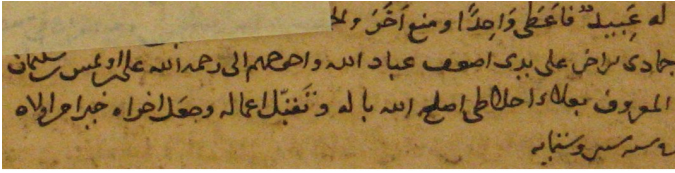 له عَبِيد فاعَطى وَاحِدًا ومنع آخَرَ
جمادى على يدى اضعف عباد الله واحوجهم الى رحمه الله على بن سليمان
المعروف بعلاء اصلح الله باله وتَقبّل اعماله وجعَل اخراه خيرا من اولاه
وستمايه